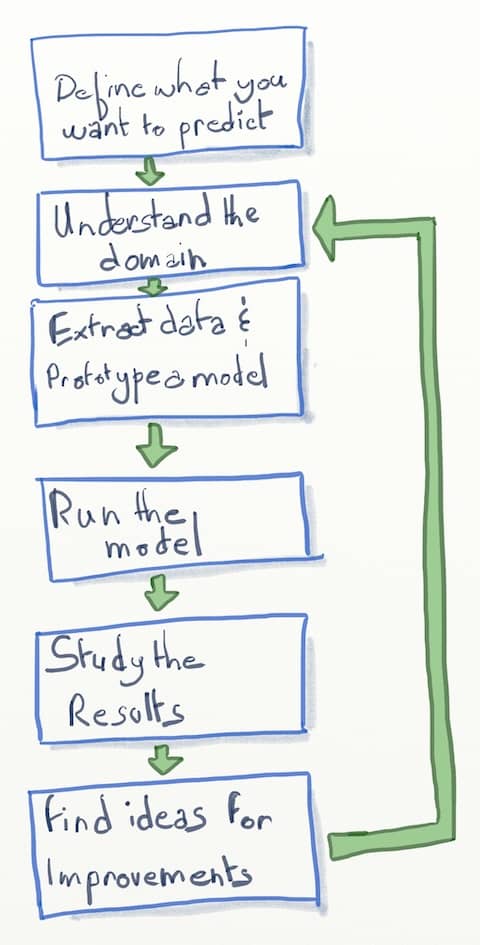 Define what you
want to predict
Understand the
domain
Extract data &
Prototype a model
Run the
model
Study the
Results
Find ideas for
Improvements